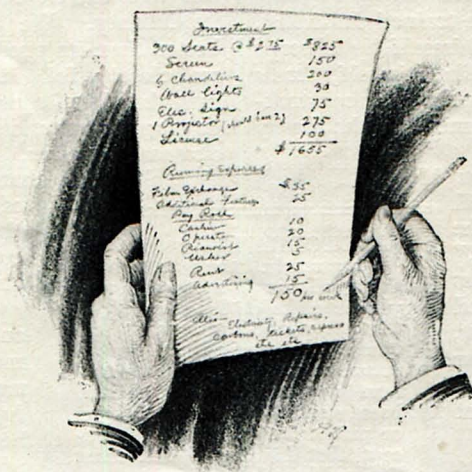 Investment
300 Seats @ $2.75 $825
Screen 150
6 Chandeliers 200
Wall lights 30
Elec. Sign 75
1 Projector (should have 2) 275
License 100
$1655
Running Expenses
Film Exchange $35
Additional Features 25
Pay Roll
Cashier 10
Operator 20
Pianoist 15
Usher 5
Rent 25
Advertising 15
150 per week
Also Electricity, Repairs,
carbons, tickets, express
etc etc